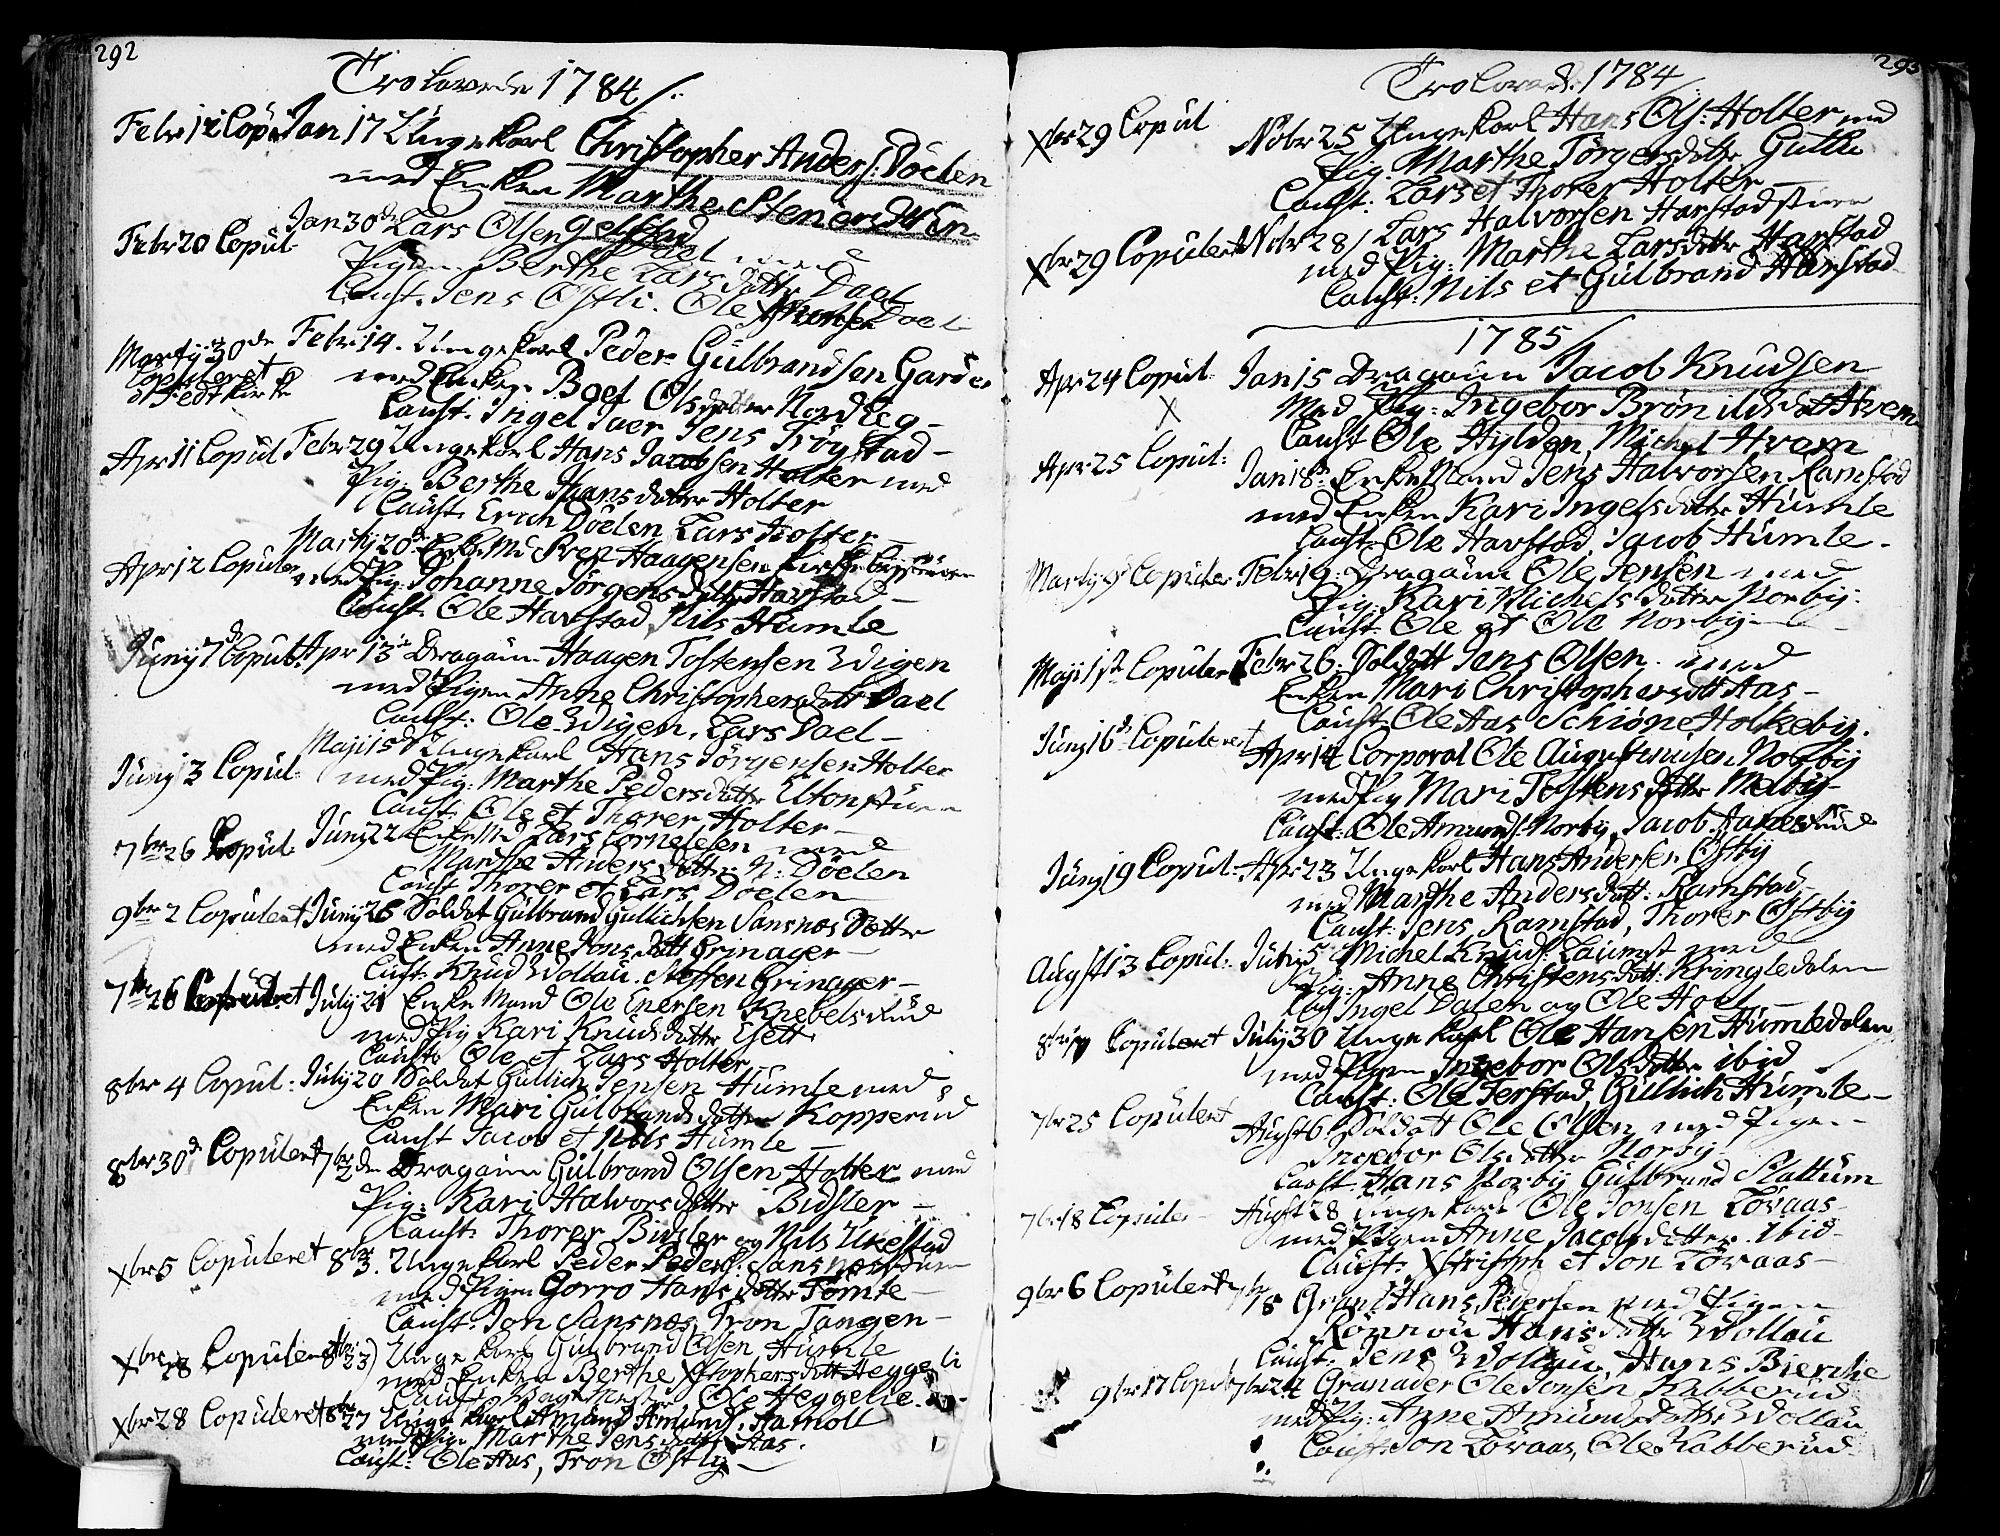 292
Trolovede 1784
Febr 12 Copu Jan 17 Ungekarl Christopher Anders: Döelen
med Enken Marthe Steners dtt En
gelstad
Febr 20 Copul Jan 30 d Lars Olsen Dael med
Pigen Berthe Lars datter Dael
Caust. Jens Østli. Ole Dael
Martij 30 de Febr 14. Ungekarl Peder Gulbrandsen Garder
Copuleret med Enken Boel Olsdatter Nordbeg
Fedt Kirke Caust. Ingel Jaer Jens Frögstad
Apr 11 Copul Febr 29 Ungekarl Hans Jacobsen Holter med
Pig. Berthe Hans datter Holter
Caust. Erich Döelen Lars Holter
Apr 12 Copuler Martij 20 d Enke Md Sven Haagensen
med Pig. Johanne Jörgens datt Harstad
Caust. Ole Harstad, Nils Humle
Junij 7 d Copul. Apr 13 Dragoun Haagen Tostensen Wigen
med Pigen Anne Christophersdatt Dael
Caust: Ole Wigen, Lars Dael
Junij 3 Copul: Maji 15 d Ungekarl Hans Jörgensen Holter
med Pig: Marthe Peders datter
Caust Ole et Thorer Holter
7br 26 Copul Junij 22 Enke Md Lars Cornelsen med
Marthe Anders datter N: Döelen
Caust Thorer et Lars Döelen
9br 2 Copulert Junij 26 Soldat Gulbrand Gullichsen Sansnos
med Enken Anne Jons datt Grinager
Caust. Knud Wollau. Steffen Grinager
7br 26 Copuleret July 21 Enke Mand Ole Enersen Knebelsrud
med Pig Kari Knuds datter Esett
Caust: Ole et Lars Holter
8br 4 Copul: July 20 Soldat Gullich Jensen Humle med
Enken Mari Gulbrands datter Kopperud
Caust Jacob et Nils Humle
8br 30 d Copulert 7br 2 den Dragoun Gulbrand Olsen Holter med
Pig: Kari Halvors datter Bidsler
Caust: Thorer Bidsler og Nils Ukestad
Xbr 5 Copuleret 8br 3. Ungekarl Peder Peders: Sansnos
med Pigen Gorro Hans datter Tomte
Caust: Jon Sansnos, Tron Tangen
Xbr 28 Copuleret 8br 23 Ungekarl Gulbrand Olsen Humle
med Enken Berthe Xstophersdatt Heggeli
Caust Ole Heggelie.
Xbr 28 Copuleret 8br 27 Ungekarl Amund Amunds: Hamoll
med Pig. Marthe Jens datter Aas.
Caust: Ole Aas, Tron Østly
293
Trolovede 1784
Xbr 29 Copul Nobr 25 Ungekarl Hans Ols: Holter med
Pig. Marthe Törgersdatter Gutke
Caust: Lars et Thorer Holter
Xbr 29 Copulert Nobr 28 Lars Halvorsen Harstad
med Pig: Marthe Larsdatter Harstad
Caust: Nils et Gulbrand Harstad
1785
Apr 24 Copul: Jan 15 Dragoun Jacob Knudsen
X Med Pig: Ingebor Brönilds datt Hvem
Caust Ole Hylden, Michel Hvam
Apr 25 Copul: Jan 18 Enke Mand Jens Halvorsen Ramstad
med Enken Kari Ingels datter Humle
Caust: Ole Harstad, Jacob Humle
Martij Copuler Febr 19: Dragoun Ole Jensen med
Pig: Kari Michels datter Norby
Caust: Ole et Ole Norby
Maji 1ste Copulert Febr 26: Soldatt Jens Olsen med
Enken Mari Christophersdatt Aas
Caust: Ole Aas Schiöne Holkeby.
Junij 16 d Copuleret Apr 14 Corporal Ole Augustinusen Norby
med Pig Mari Tostens datter Melby
Caust: Ole Amunds: Norby, Jacob
Junij 19 Copul: Apr 23 Ungekarl Hans Andersen Østby
med Marthe Anders datt: Ramstad
Caust: Jens Ramstad, Thorer Østby
August 13 Copul: July 5 Michel Knuds: med
Pig: Anne Christens datt: Kringledalen
Caust Ingel Dalen og Ole Hoel
8br Copuleret July 30 Ungekarl Ole Hansen Humledalen
med Pigen Ingebor Olsdatter ibid
Caust: Ole Ferstad, Gullich Humle
7br 25 Copulert August 6 Soldatt Ole Olsen med Pigen
Ingebor Olsdatter Norby
Caust: Hans Norby Gulbrand Slattum
7br 18 Copuler August 28 Ungekarl Ole Jonsen Lövaas
med Pigen Anne Jacobs datter Ibid
Caust: Xstristoph et Jon Lövaas
9br 6 Copulert 7br 8 Gran: Hans Pedersen med Pigen
Rönnou Hans datter Wollau
Caust: Jens Wollau, Hans Bierche
9br 17 Copul 7br 24 Granader Ole Jonsen Kabberud
med Pig: Anne Amunds datter Wollau
Caust: Jon Lövaas, Ole Kabberud